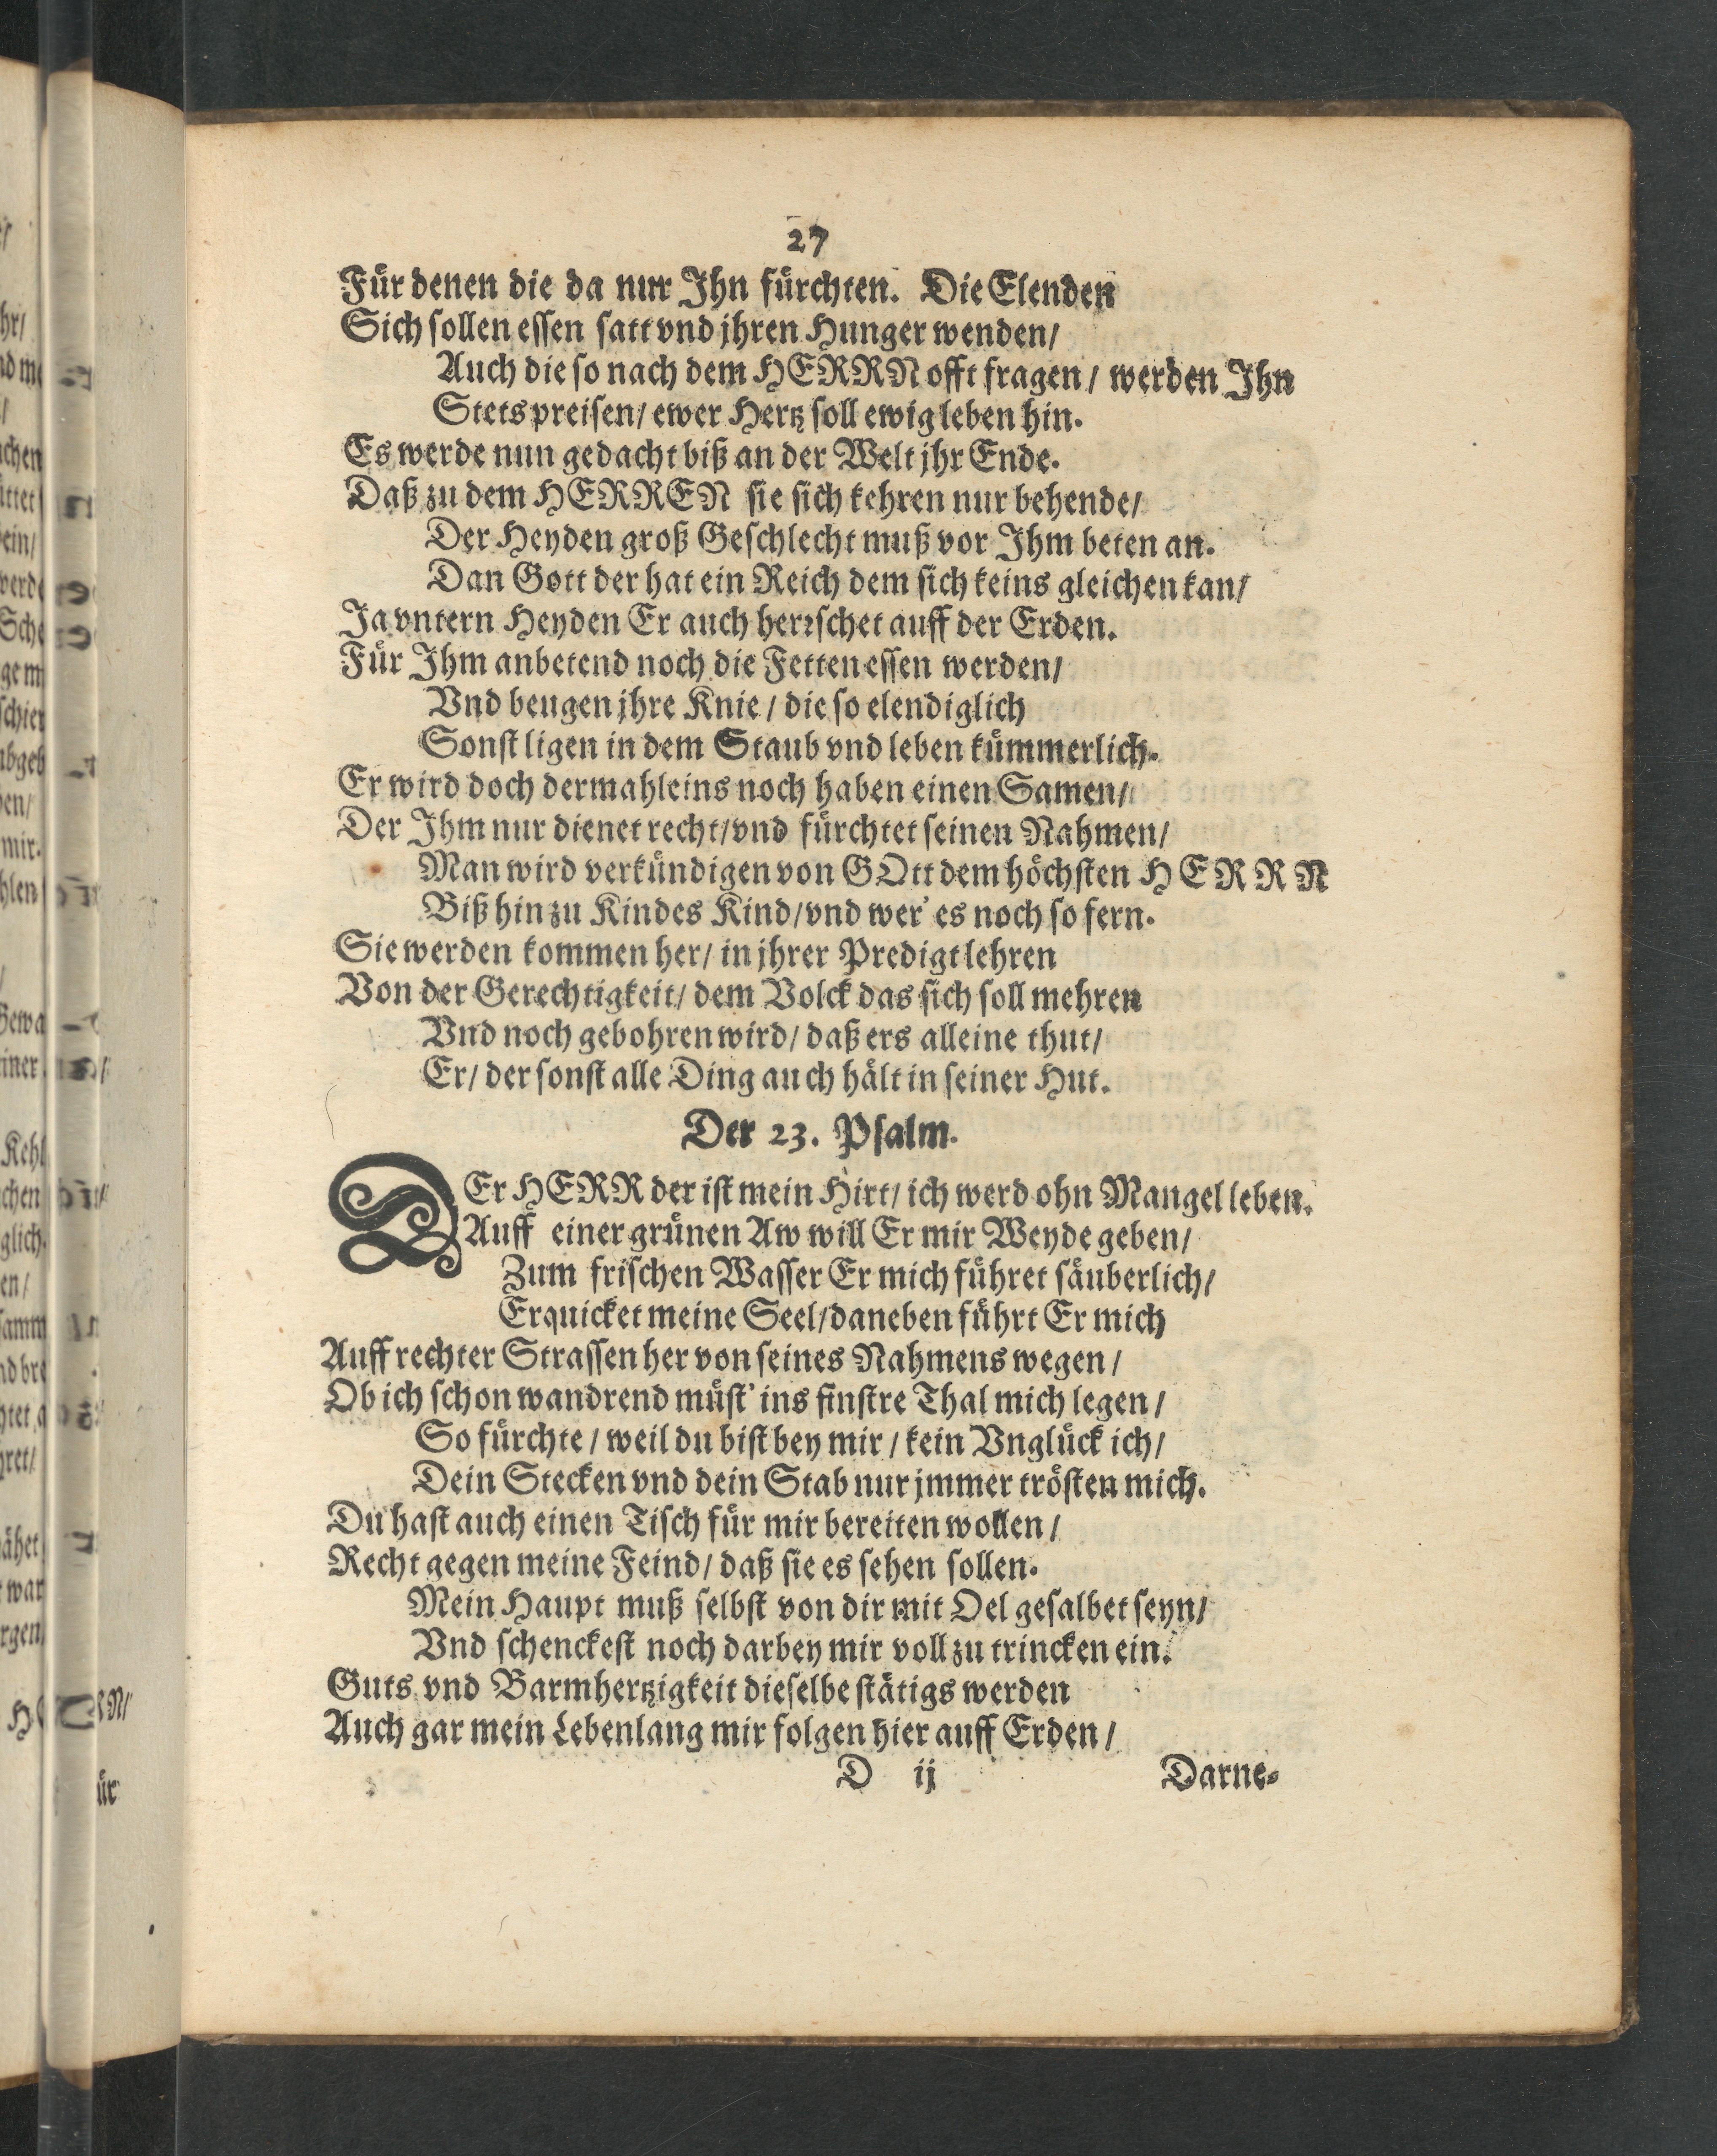 27
Für denen die da nur Ihn fürchten. Die Elenden
Sich sollen essen satt vnd jhren Hunger wenden/
Auch die so nach dem HERRN offt fragen/ werden Ihn
Stets preisen/ ewer Hertz soll ewig leben hin.
Es werde nun gedacht biß an der Welt jhr Ende.
Daß zu dem HERREN sie sich kehren nur behende/
Der Heyden groß Geschlecht muß vor Ihm beten an.
Dan Gott der hat ein Reich dem sich keins gleichen kan/
Ja vntern Heyden Er auch herrschet auff der Erden.
Für Ihm anbetend noch die Fetten essen werden/
Vnd beugen jhre Knie/ die so elendiglich
Sonst ligen in dem Staub vnd leben kümmerlich.
Er wird doch dermahleins noch haben einen Samen/
Der Ihm nur dienet recht/ vnd fürchtet seinen Nahmen/
Man wird verkündigen von GOtt dem höchsten HERRN
Biß hin zu Kindes Kind/ vnd wer' es noch so fern.
Sie werden kommen her/ in jhrer Predigt lehren
Von der Gerechtigkeit/ dem Volck das sich soll mehren
Vnd noch gebohren wird/ daß ers alleine thut/
Er/ der sonst alle Ding auch hält in seiner Hut.
Der 23. Psalm.
DEr HERR der ist mein Hirt/ ich werd ohn Mangel leben.
Auff einer grünen Aw will Er mir Weyde geben/
Zum frischen Wasser Er mich führet säuberlich/
Erquicket meine Seel/ daneben führt Er mich
Auff rechter Strassen her von seines Nahmens wegen/
Ob ich schon wandrend müst' ins finstre Thal mich legen/
So fürchte/ weil du bist bey mir/ kein Vnglück ich/
Dein Stecken vnd dein Stab nur jmmer trösten mich.
Du hast auch einen Tisch für mir bereiten wollen/
Recht gegen meine Feind/ daß sie es sehen sollen.
Mein Haupt muß selbst von dir mit Oel gesalbet seyn/
Vnd schenckest noch darbey mir voll zu trincken ein.
Guts vnd Barmhertzigkeit dieselbe stätigs werden
Auch gar mein Lebenlang mir folgen hier auff Erden/
D ij
Darne-